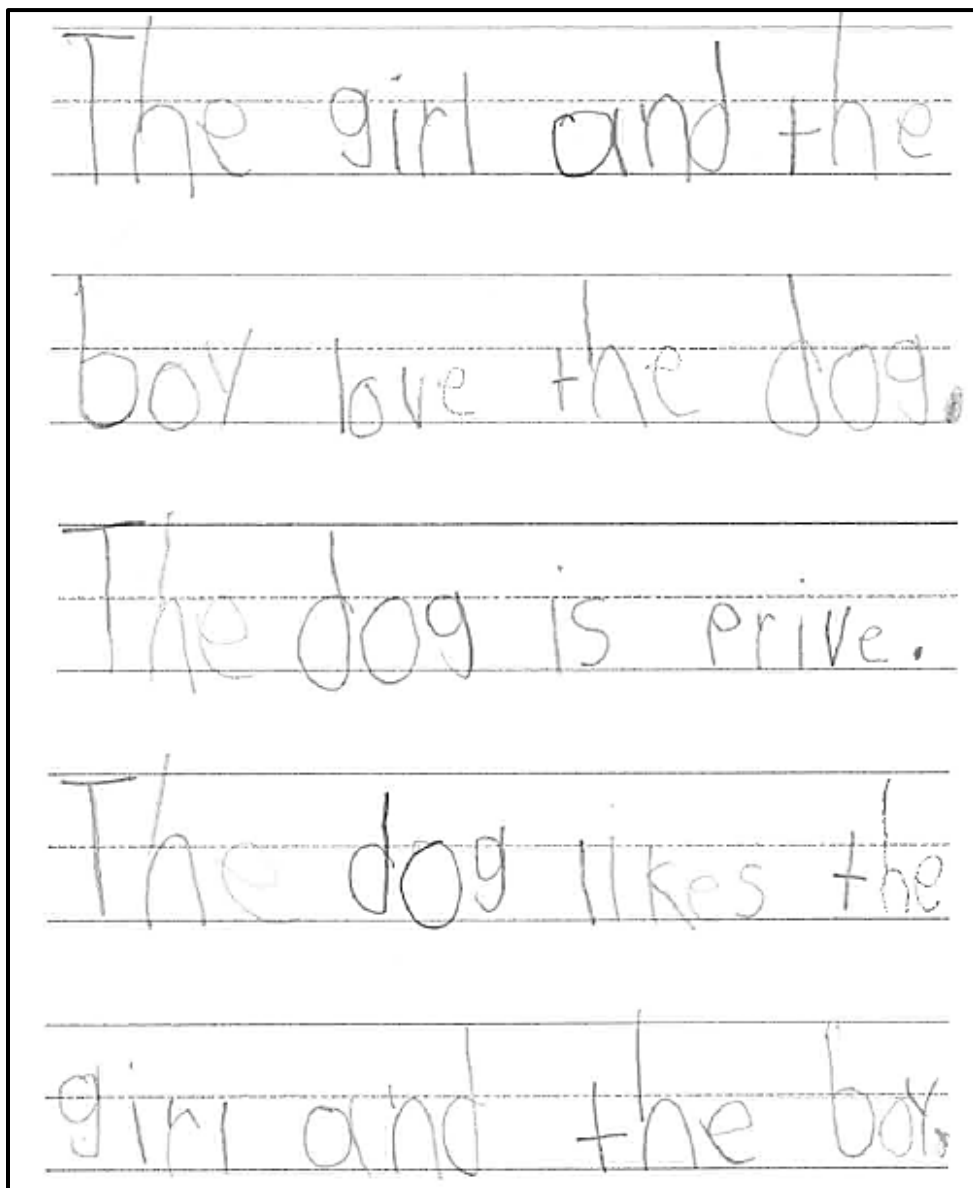 The girl and the
boy love the dog.
The dog is prive.
The dog likes the
girl and the boy.